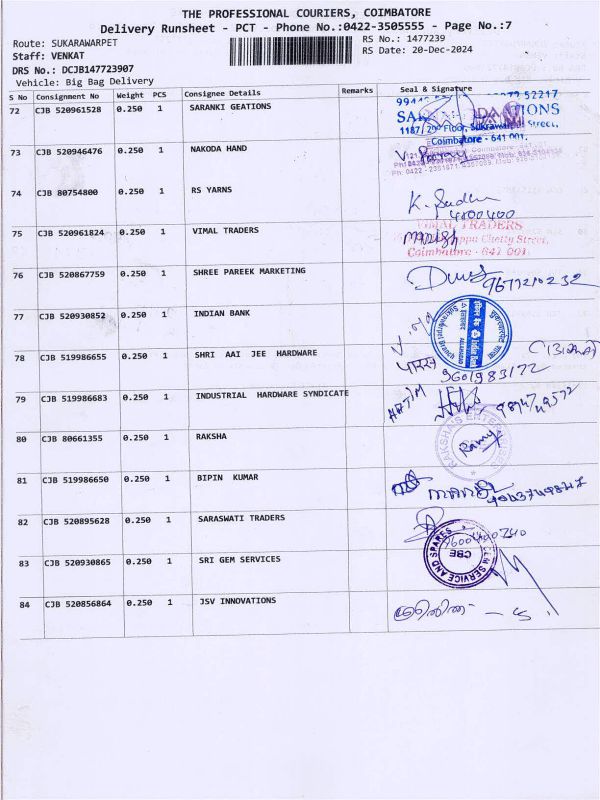 THE PROFESSIONAL COURIERS, COIMBATORE
Delivery Runsheet - PCT - Phone No.:0422-3505555 - Page No.:7
Route: SUKARAWARPET RS No.: 1477239
Staff: VENKAT RS Date: 20-Dec-2024
DRS No.: DCJB147723907
Vehicle: Big Bag Delivery
S No Consignment No Weight PCS Consignee Details Remarks Seal & Signature
72 CJB 520961528 0.250 1 SARANKI GEATIONS
1187, Floor, Sukrawarpet Street,
Coimbatore - 641 001.
73 CJB 520946476 0.250 1 NAKODA HAND
74 CJB 80754800 0.250 1 RS YARNS
K. Sudha
4100400
75 CJB 520961824 0.250 1 VIMAL TRADERS
VIMAL TRADERS
Chetty Street,
Coimbatore - 641 001.
76 CJB 520867759 0.250 1 SHREE PAREEK MARKETING
77 CJB 520930852 0.250 1 INDIAN BANK
78 CJB 519986655 0.250 1 SHRI AAI JEE HARDWARE
पारस
9601983172
79 CJB 519986683 0.250 1 INDUSTRIAL HARDWARE SYNDICATE
80 CJB 80661355 0.250 1 RAKSHA
RAKSHA'S ENTERPRISES
Ramy
81 CJB 519986650 0.250 1 BIPIN KUMAR
82 CJB 520895628 0.250 1 SARASWATI TRADERS
83 CJB 520930865 0.250 1 SRI GEM SERVICES
GEM SERVICE AND SPARES
CBE
84 CJB 520856864 0.250 1 JSV INNOVATIONS